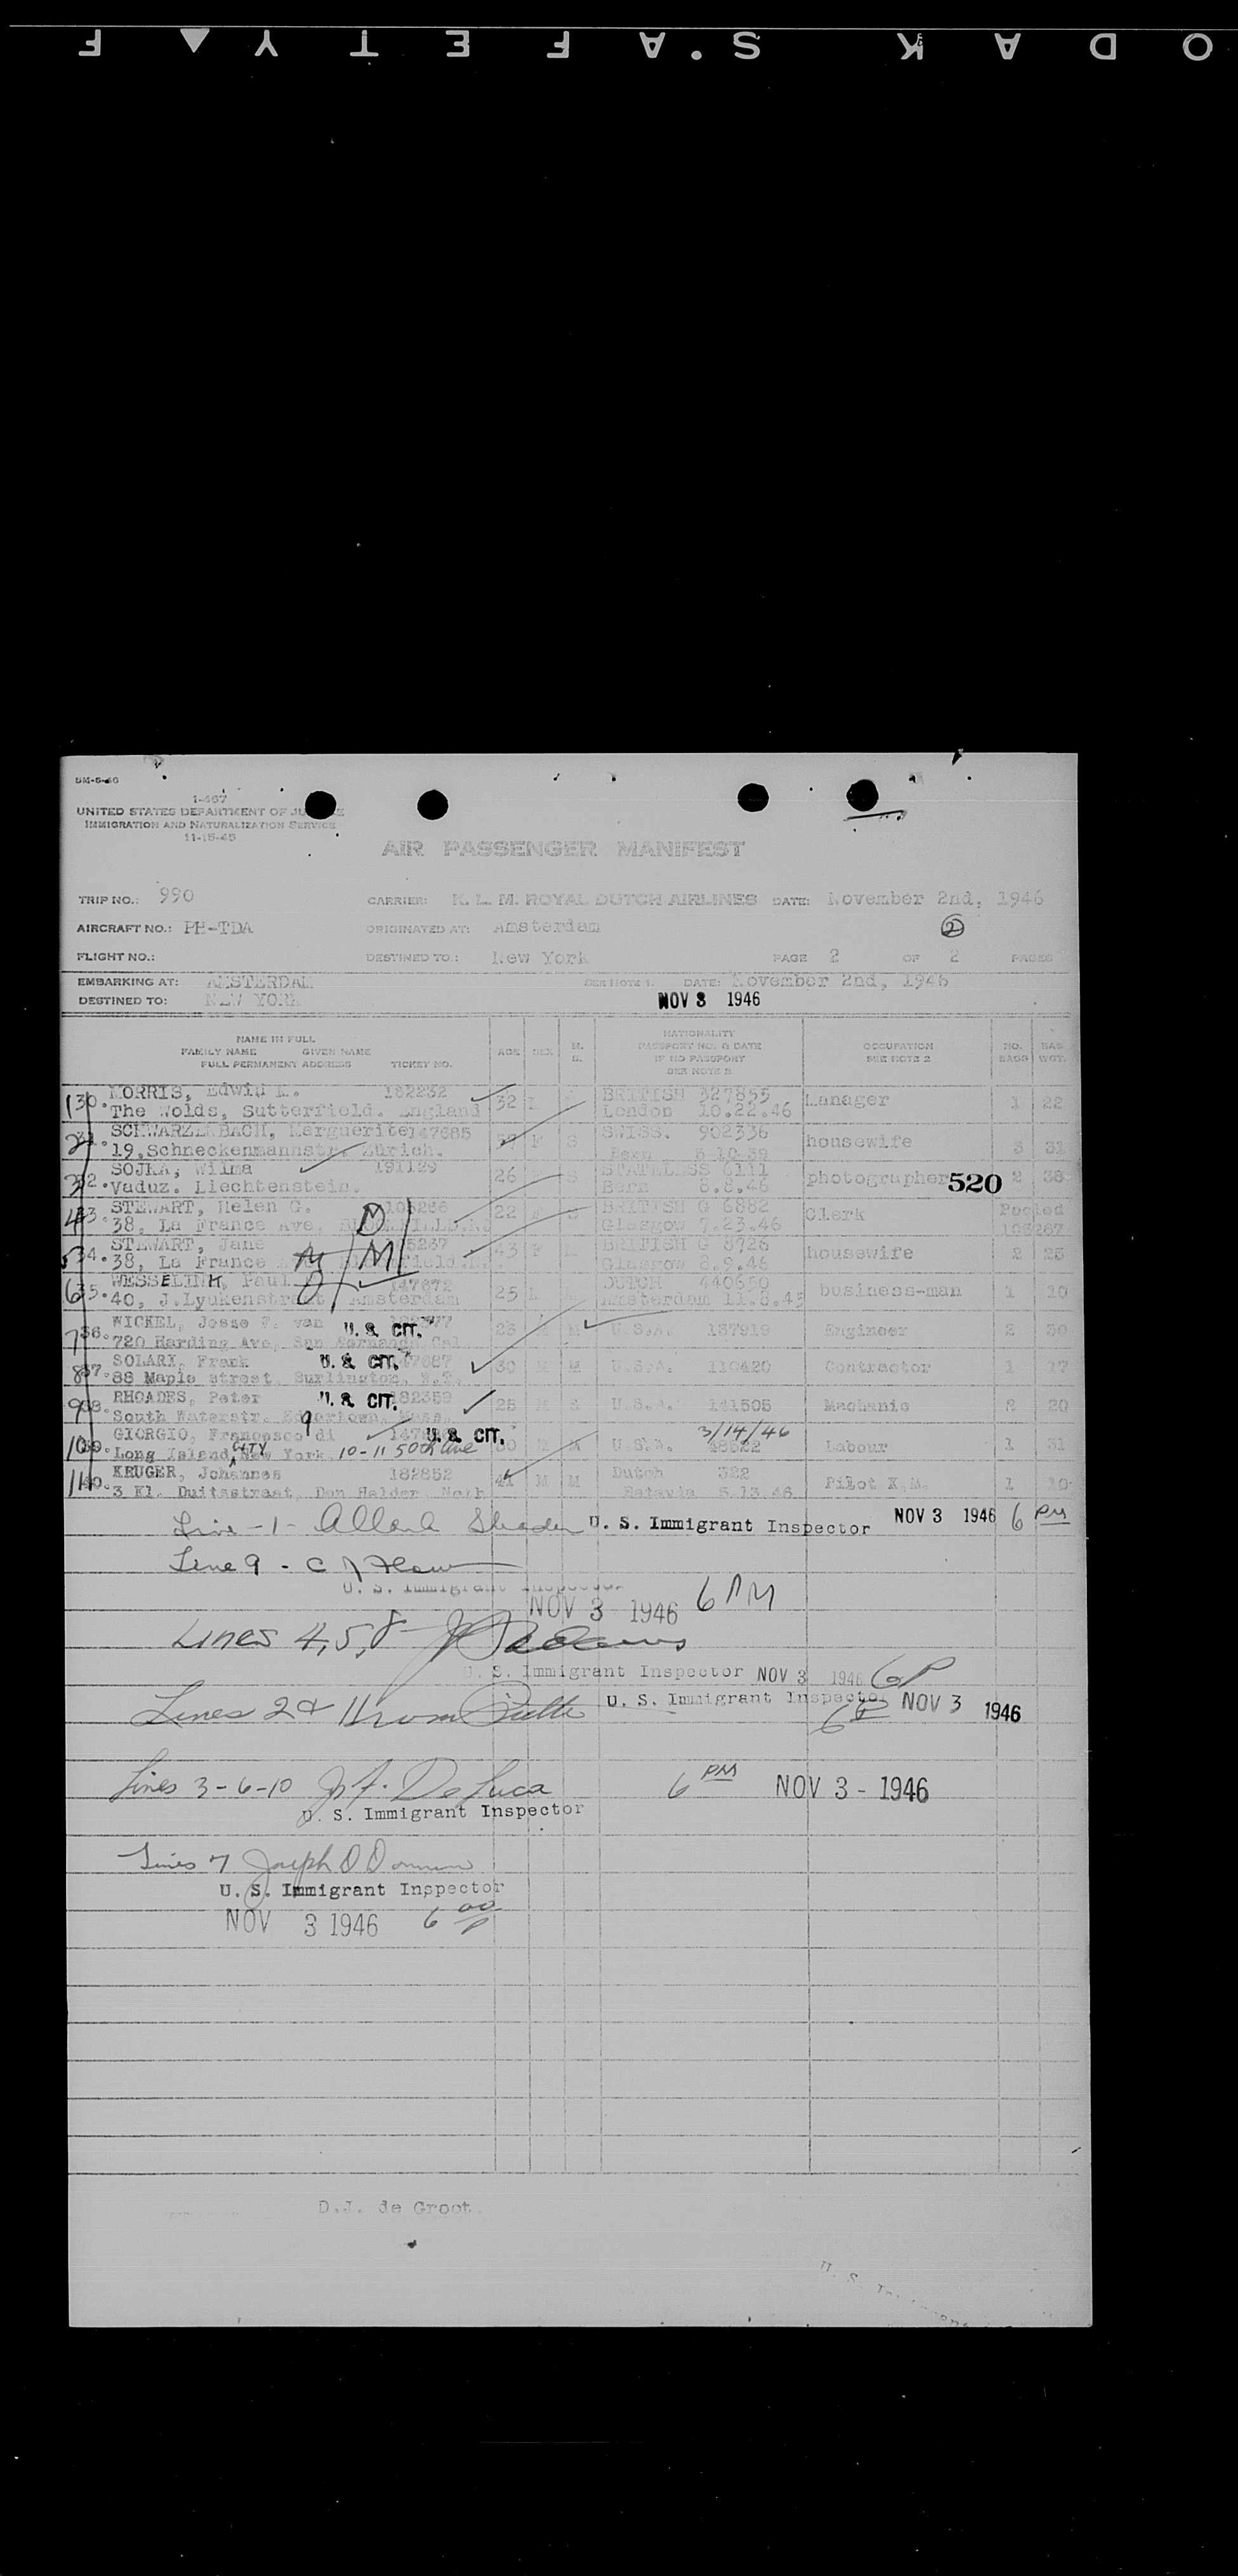 KODAK S·AFETY▼F
BM-5-46
I-467
UNITED STATES DEPARTMENT OF JUSTICE
IMMIGRATION AND NATURALIZATION SERVICE
11-15-45
AIR PASSENGER MANIFEST
TRIP NO.: 990 CARRIER: K. L. M. ROYAL DUTCH AIRLINES DATE: November 2nd, 1946
AIRCRAFT NO.: PH-TDA ORIGINATED AT: Amsterdam 2
FLIGHT NO.: DESTINED TO.: New York PAGE 2 OF 2 PAGES
EMBARKING AT: AMSTERDAM SEE NOTE 1. DATE: November 2nd, 1946
DESTINED TO: NEW YORK NOV 3 1946
NAME IN FULL
FAMILY NAME GIVEN NAME
FULL PERMANENT ADDRESS TICKET NO.
AGE SEX M. S.
NATIONALITY
PASSPORT NO. & DATE
IF NO PASSPORT
SEE NOTE
OCCUPATION
SEE NOTE 2
NO. BAGS BAG. WGT.
1 30. MORRIS, Edwin 182232 32 BRITISH 327855 Manager 1 22
The Wolds, Sutterfield. England London 10.22.46
2 31. SCHWARZENBACH, Marguerite 147685 F S SWISS. 902336 housewife 3 31
19, Schneckenmannstr. Zürich. Bern
3 32. SOJKA, Wilma 191129 26 S STATELESS 6111 photographer 520 2 38
Vaduz. Liechtenstein. Bern 8.8.46
4 33. STEWART, Helen G. 22 BRITISH G 6882 Clerk Pooled
38, La France Ave. Glasgow 7.23.46
D
5 34. STEWART, Jane 43 F BRITISH G 8726 housewife 2 25
38, La France Glasgow 8.9.46
M M
6 35. WESSELINK, Paul 147672 25 DUTCH 440650 business-man 1 10
40, J.Lyukenstraat Amsterdam Amsterdam 11.8.45
7 36. WICKEL, Jesse F. van U. S. CIT. M U.S.A. 137919 Engineer 2 30
720 Harding Ave, San Fernando Cal
8 37. SOLARI, Frank U. S. CIT. 30 M M U.S.A. 110420 Contractor 1 17
88 Maple street, Burlington.
9 38. RHOADES, Peter U. S. CIT. 182359 25 M S U.S.A. 141505 Mechanic 2 20
South Waterstr. Edgartown, Mass.
10 39. GIORGIO, Francesco di U. S. CIT. M M U.S.A. 3/14/46 Labour 1 31
Long Island CITY New York. 10-11 50th Ave
11 40. KRUGER, Johannes 182852 41 M M Dutch 322 Pilot 1 10
3 Kl. Duitsstraat, Den Helder. Neth Batavia 5.13.46
Line - 1 U. S. Immigrant Inspector NOV 3 1946 6 PM
Line 9 -
U. S. Immigrant Inspector
NOV 3 1946 6 PM
Lines 4, 5, 8
U. S. Immigrant Inspector NOV 3 1946 6P
Lines 2 & 11 U. S. Immigrant Inspector NOV 3 1946
Lines 3-6-10 De Luca 6 PM NOV 3 - 1946
U. S. Immigrant Inspector
Lines 7 Joseph
U. S. Immigrant Inspector
NOV 3 1946 6 00 P
D.J. de Groot.